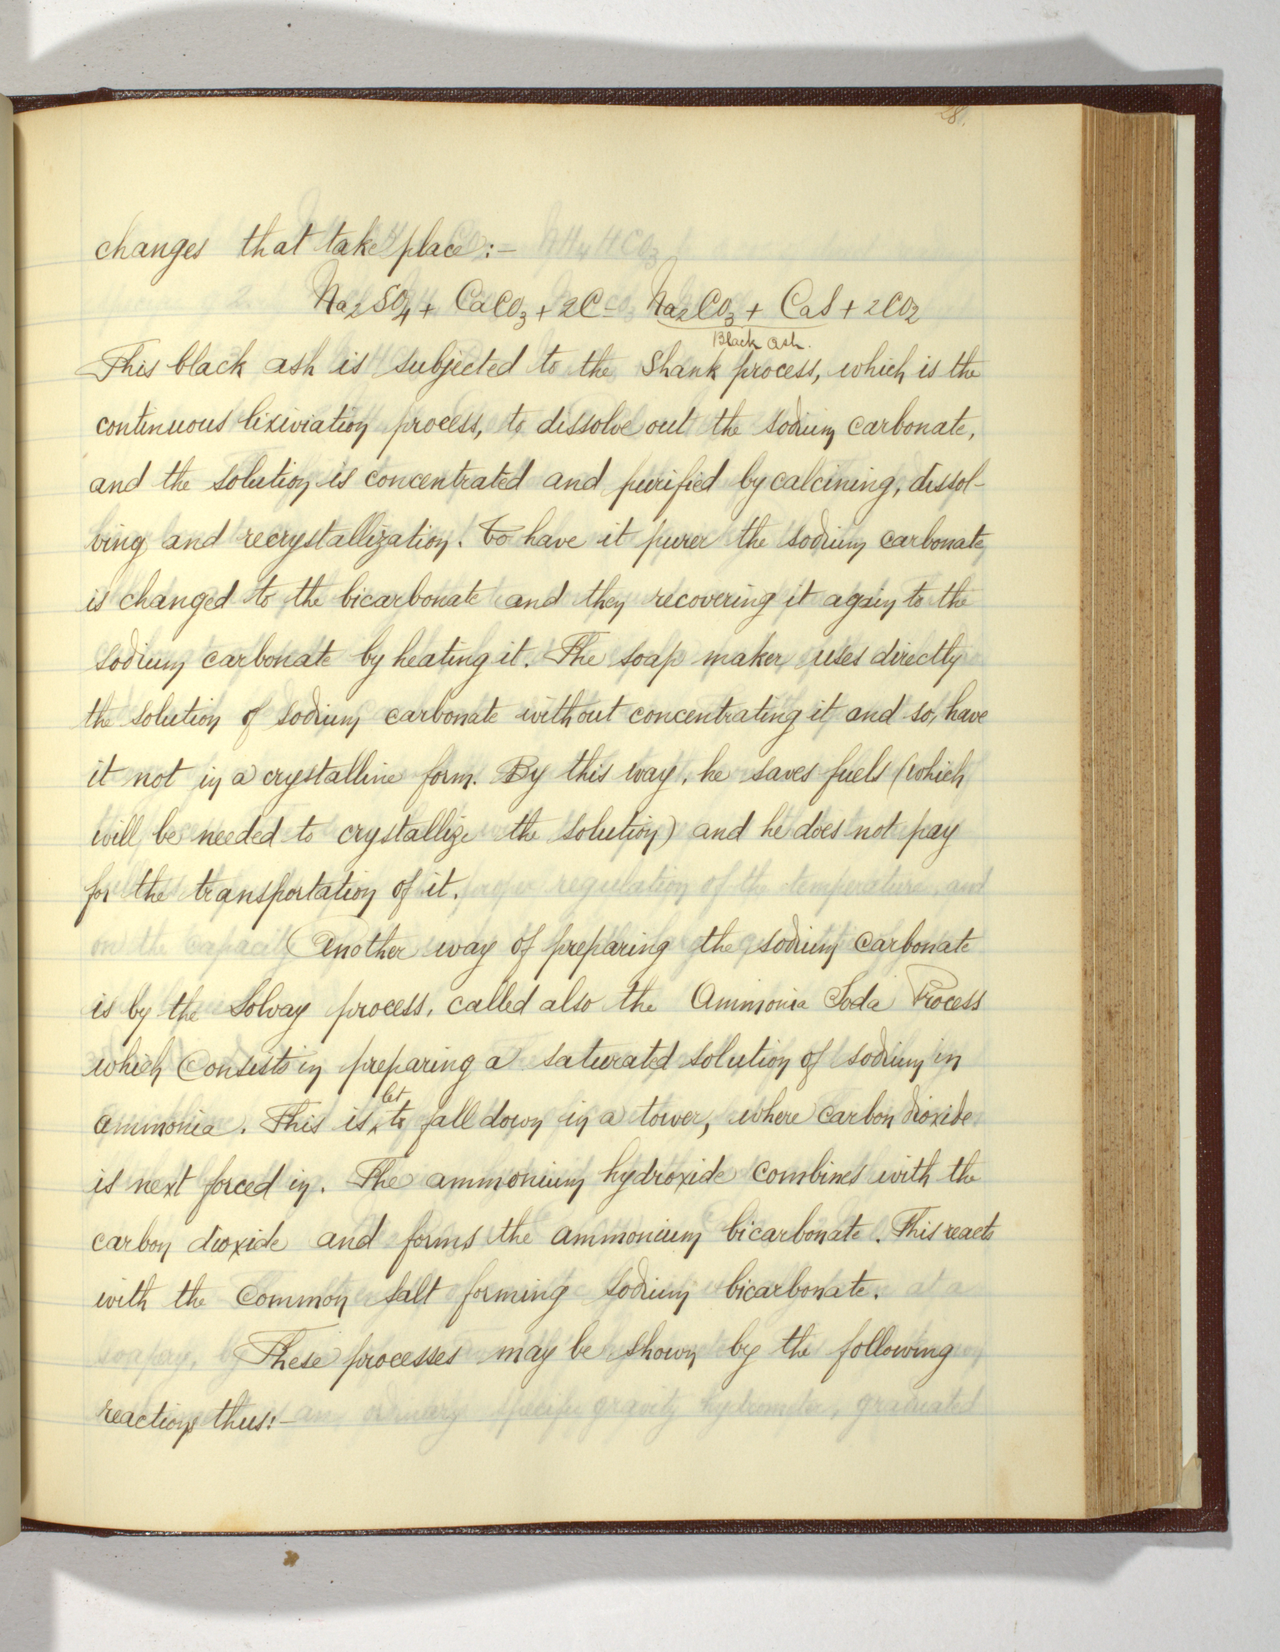 28.
changes that take place:-
Na2SO4 + CaCO3 + 2C = Na2CO3 + CaS + 2CO2
Black ash.
This black ash is subjected to the Shank process, which is the
continuous lixiviation process, to dissolve out the sodium carbonate,
and the solution is concentrated and purified by calcining, dissol-
ving and recrystallization. To have it purer the sodium carbonate
is changed to the bicarbonate and then recovering it again to the
sodium carbonate by heating it. The soap maker uses directly
the solution of sodium carbonate without concentrating it and so, have
it not in a crystalline form. By this way, he saves fuels (which
will be needed to crystallize the solution) and he does not pay
for the transportation of it.
Another way of preparing the sodium carbonate
is by the Solvay process, called also the Ammonia Soda Process
which consists in preparing a saturated solution of sodium in
ammonia. This is let to fall down in a tower, where carbon dioxide
is next forced in. The ammonium hydroxide combines with the
carbon dioxide and forms the ammonium bicarbonate. This reacts
with the common salt forming sodium bicarbonate.
These processes may be shown by the following
reactions thus:-